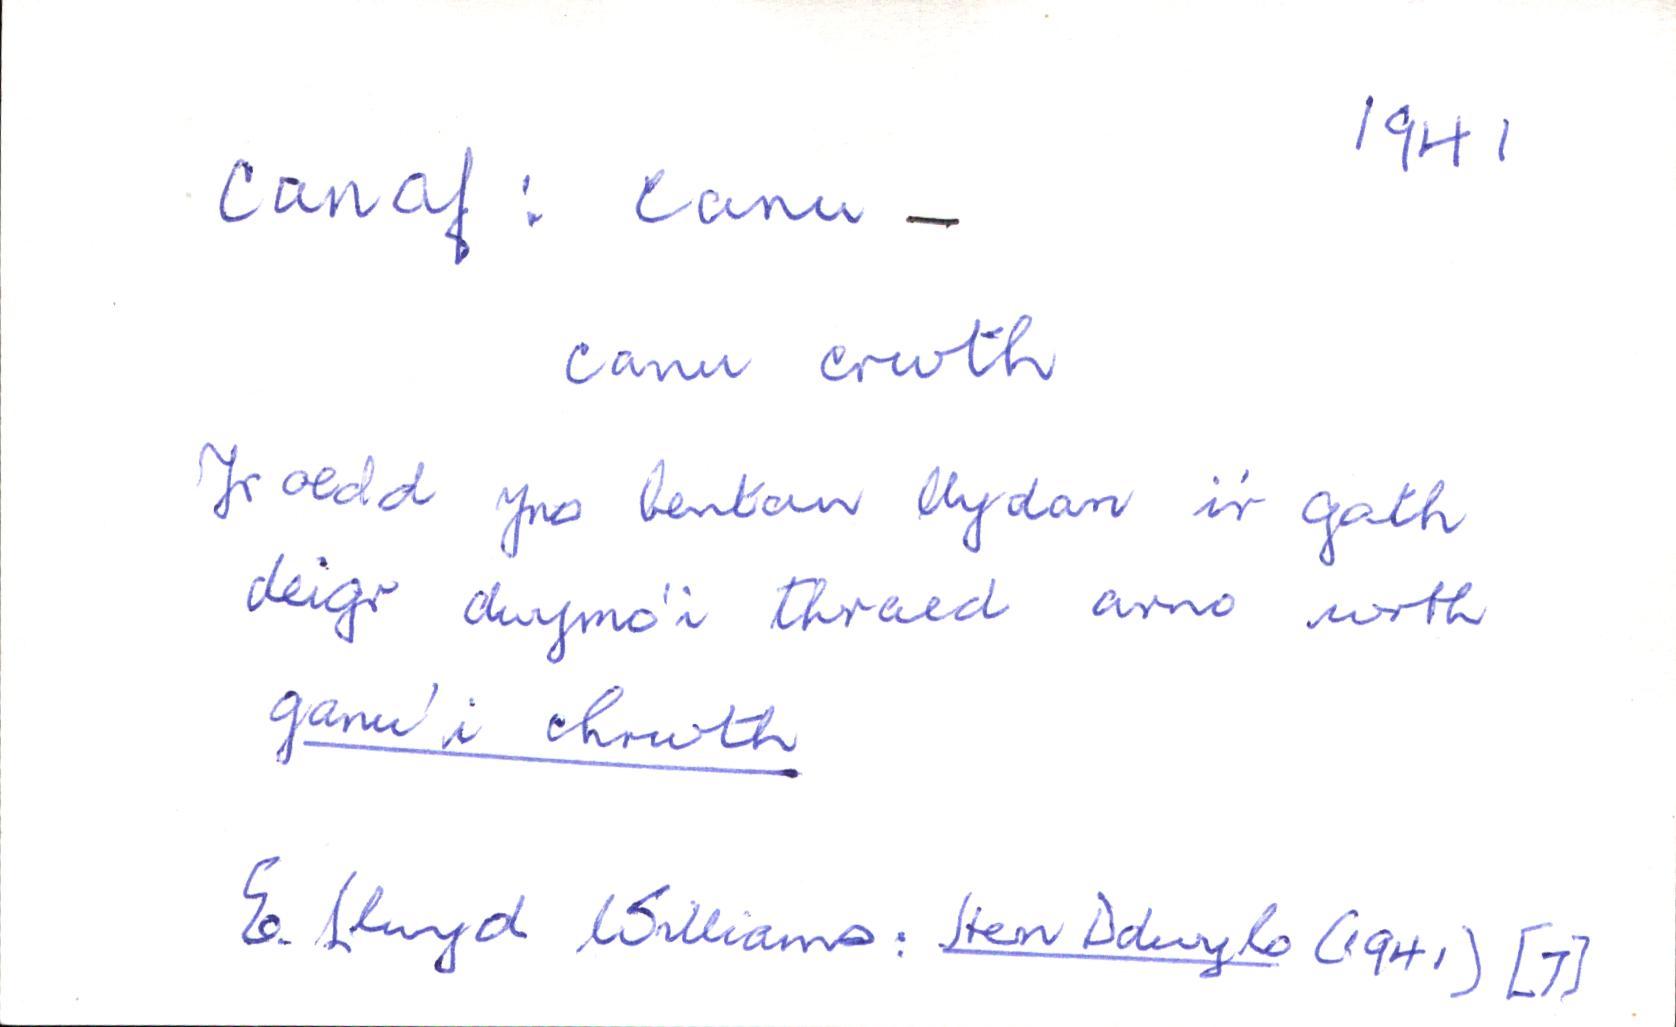 1941
canaf: canu –
canu crwth
Yr oedd yno bentan llydan i'r gath
deigr dwymo'i thraed arno wrth
ganu'i chrwth
E. Llwyd Williams: Hen Ddwylo (1941) [7]